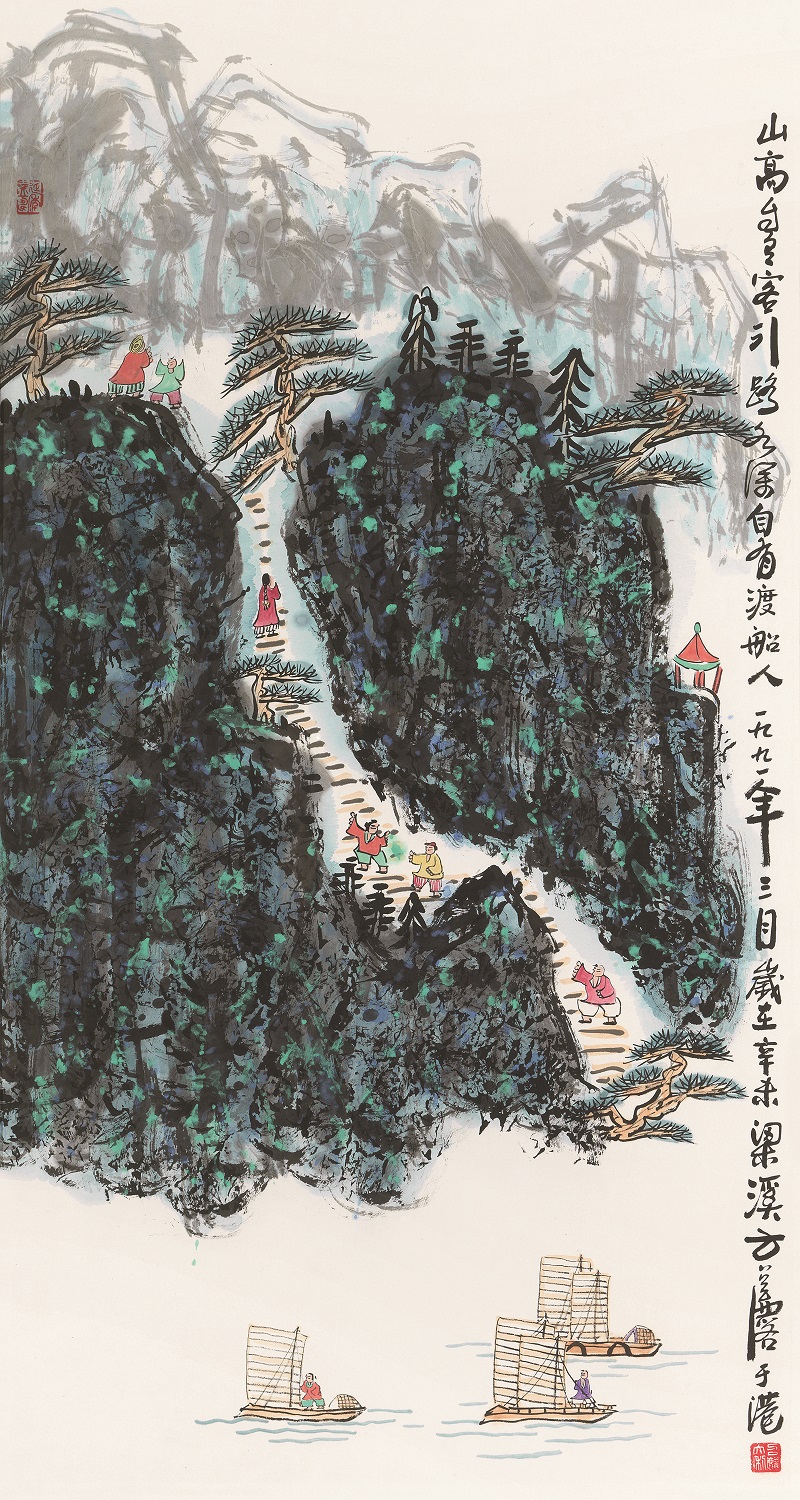 山高自有客行路水深自有渡船人一九九一年三月歲在辛未梁溪方召麐于港